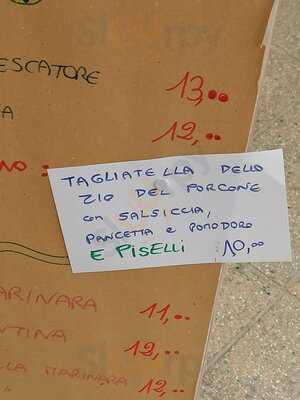 ESCATORE 13,00
A 12,00
NO :
TAGLIATELLA DELLO
ZIO DEL PORCONE
CON SALSICCIA,
PANCETTA e POMODORO
E PISELLI 10,00
ARINARA 11,00
NTINA 12,00
LLA MARINARA 12,00